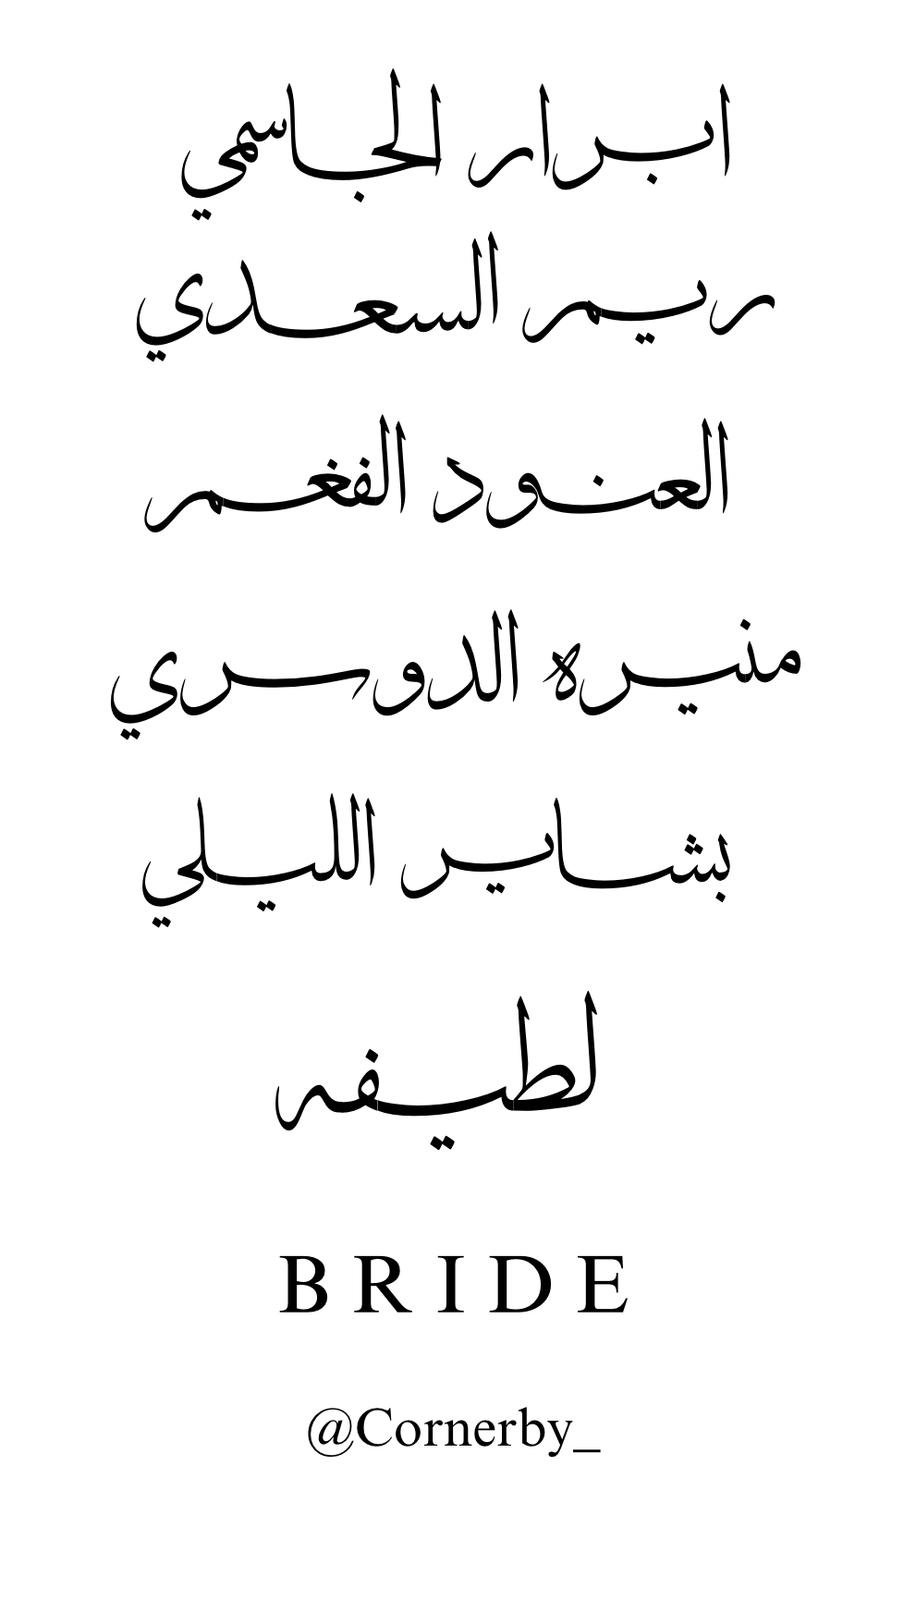 ابرار الجاسمي
ريم السعدي
العنود الفغم
منيره الدوسري
بشاير الليلي
لطيفه
BRIDE
@Cornerby_